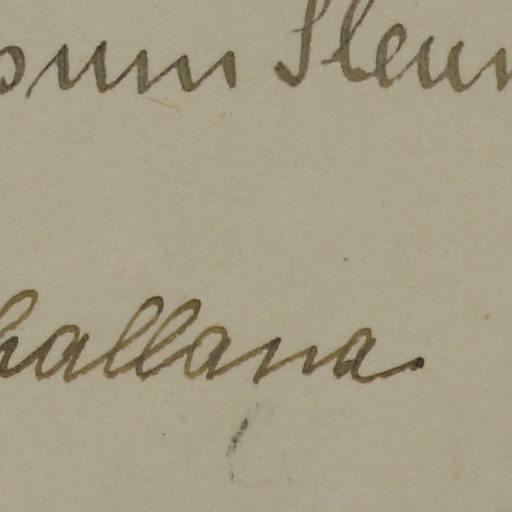 sum Sleum
hallana